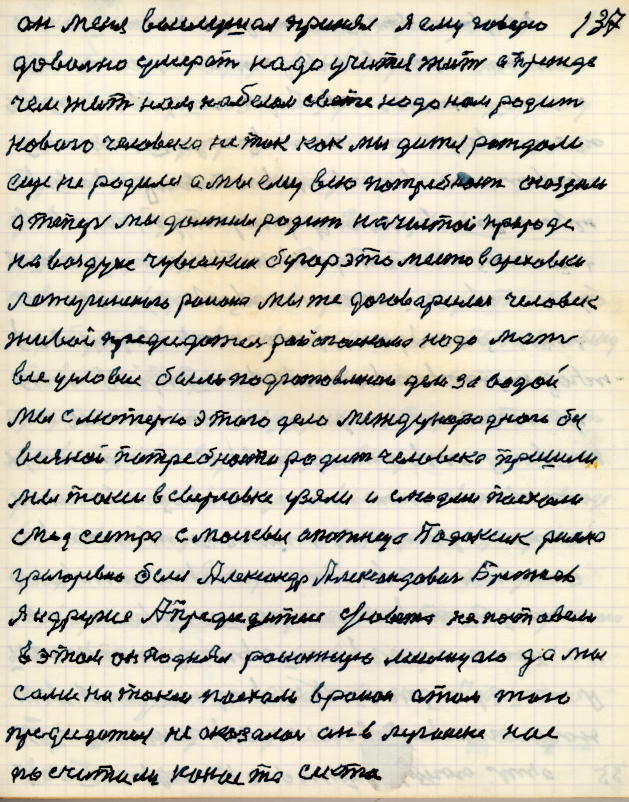 он меня выслушал принял я ему говорю 137
довольно умерат надо учится жит а прежде
чем жит нам на белом свете надо нам родит
нового человека не так как мы дител рождали
еще не родился а мы ему всю потребност создали
а тепер мы должны родит на чистой природе
на воздухе чувилкин бугор это место в ореховки
лотугинского района мы же договарилис человек
живой председател райсполкома надо мат
все условие был подготовлион ден за водой
мы с мотерю этого дело международного бе
всякой потребности родит человека пришли
мы такси в свердловке узяли и с людми поехали
с мед сестра с москвы
григоревна бели Александр Александович
и друге А председател совета не поставели
в этом он поднял районную милицию да мы
сами на такси поехали в район а там того
председател не оказалос он в луганске нас
посчитали каноста секта